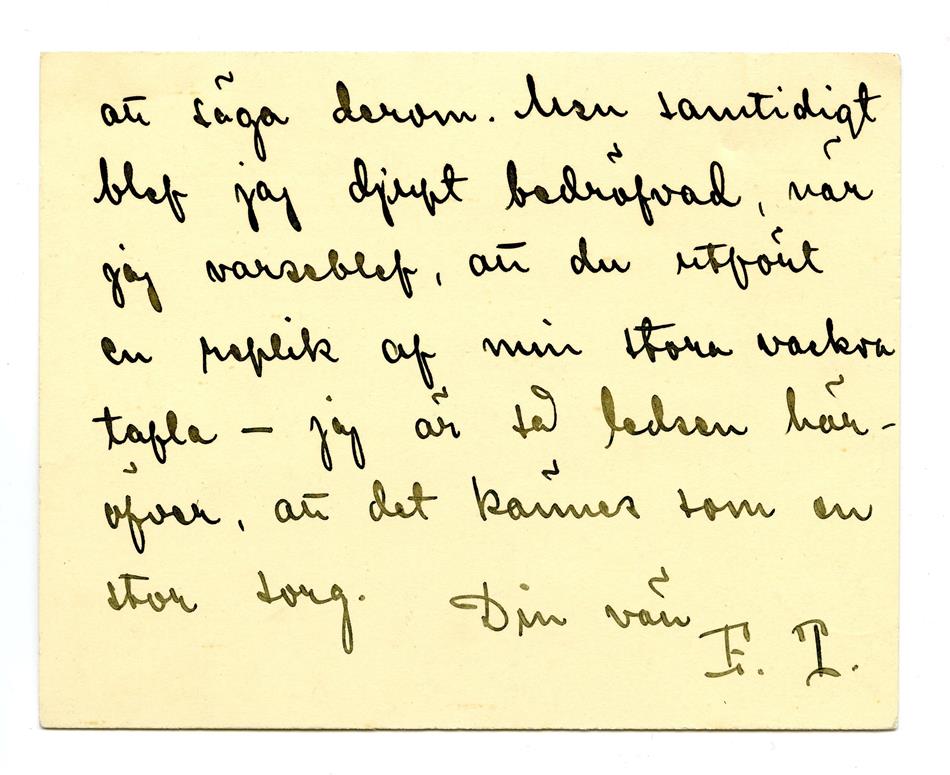 att säga derom. Men samtidigt
blef jag djupt bedröfvad, när
jag varseblef, att du utfört
en replik af min stora vackra
tafla – jag är så ledsen här-
öfver, att det kännes som en
stor sorg. Din vän
F. T.